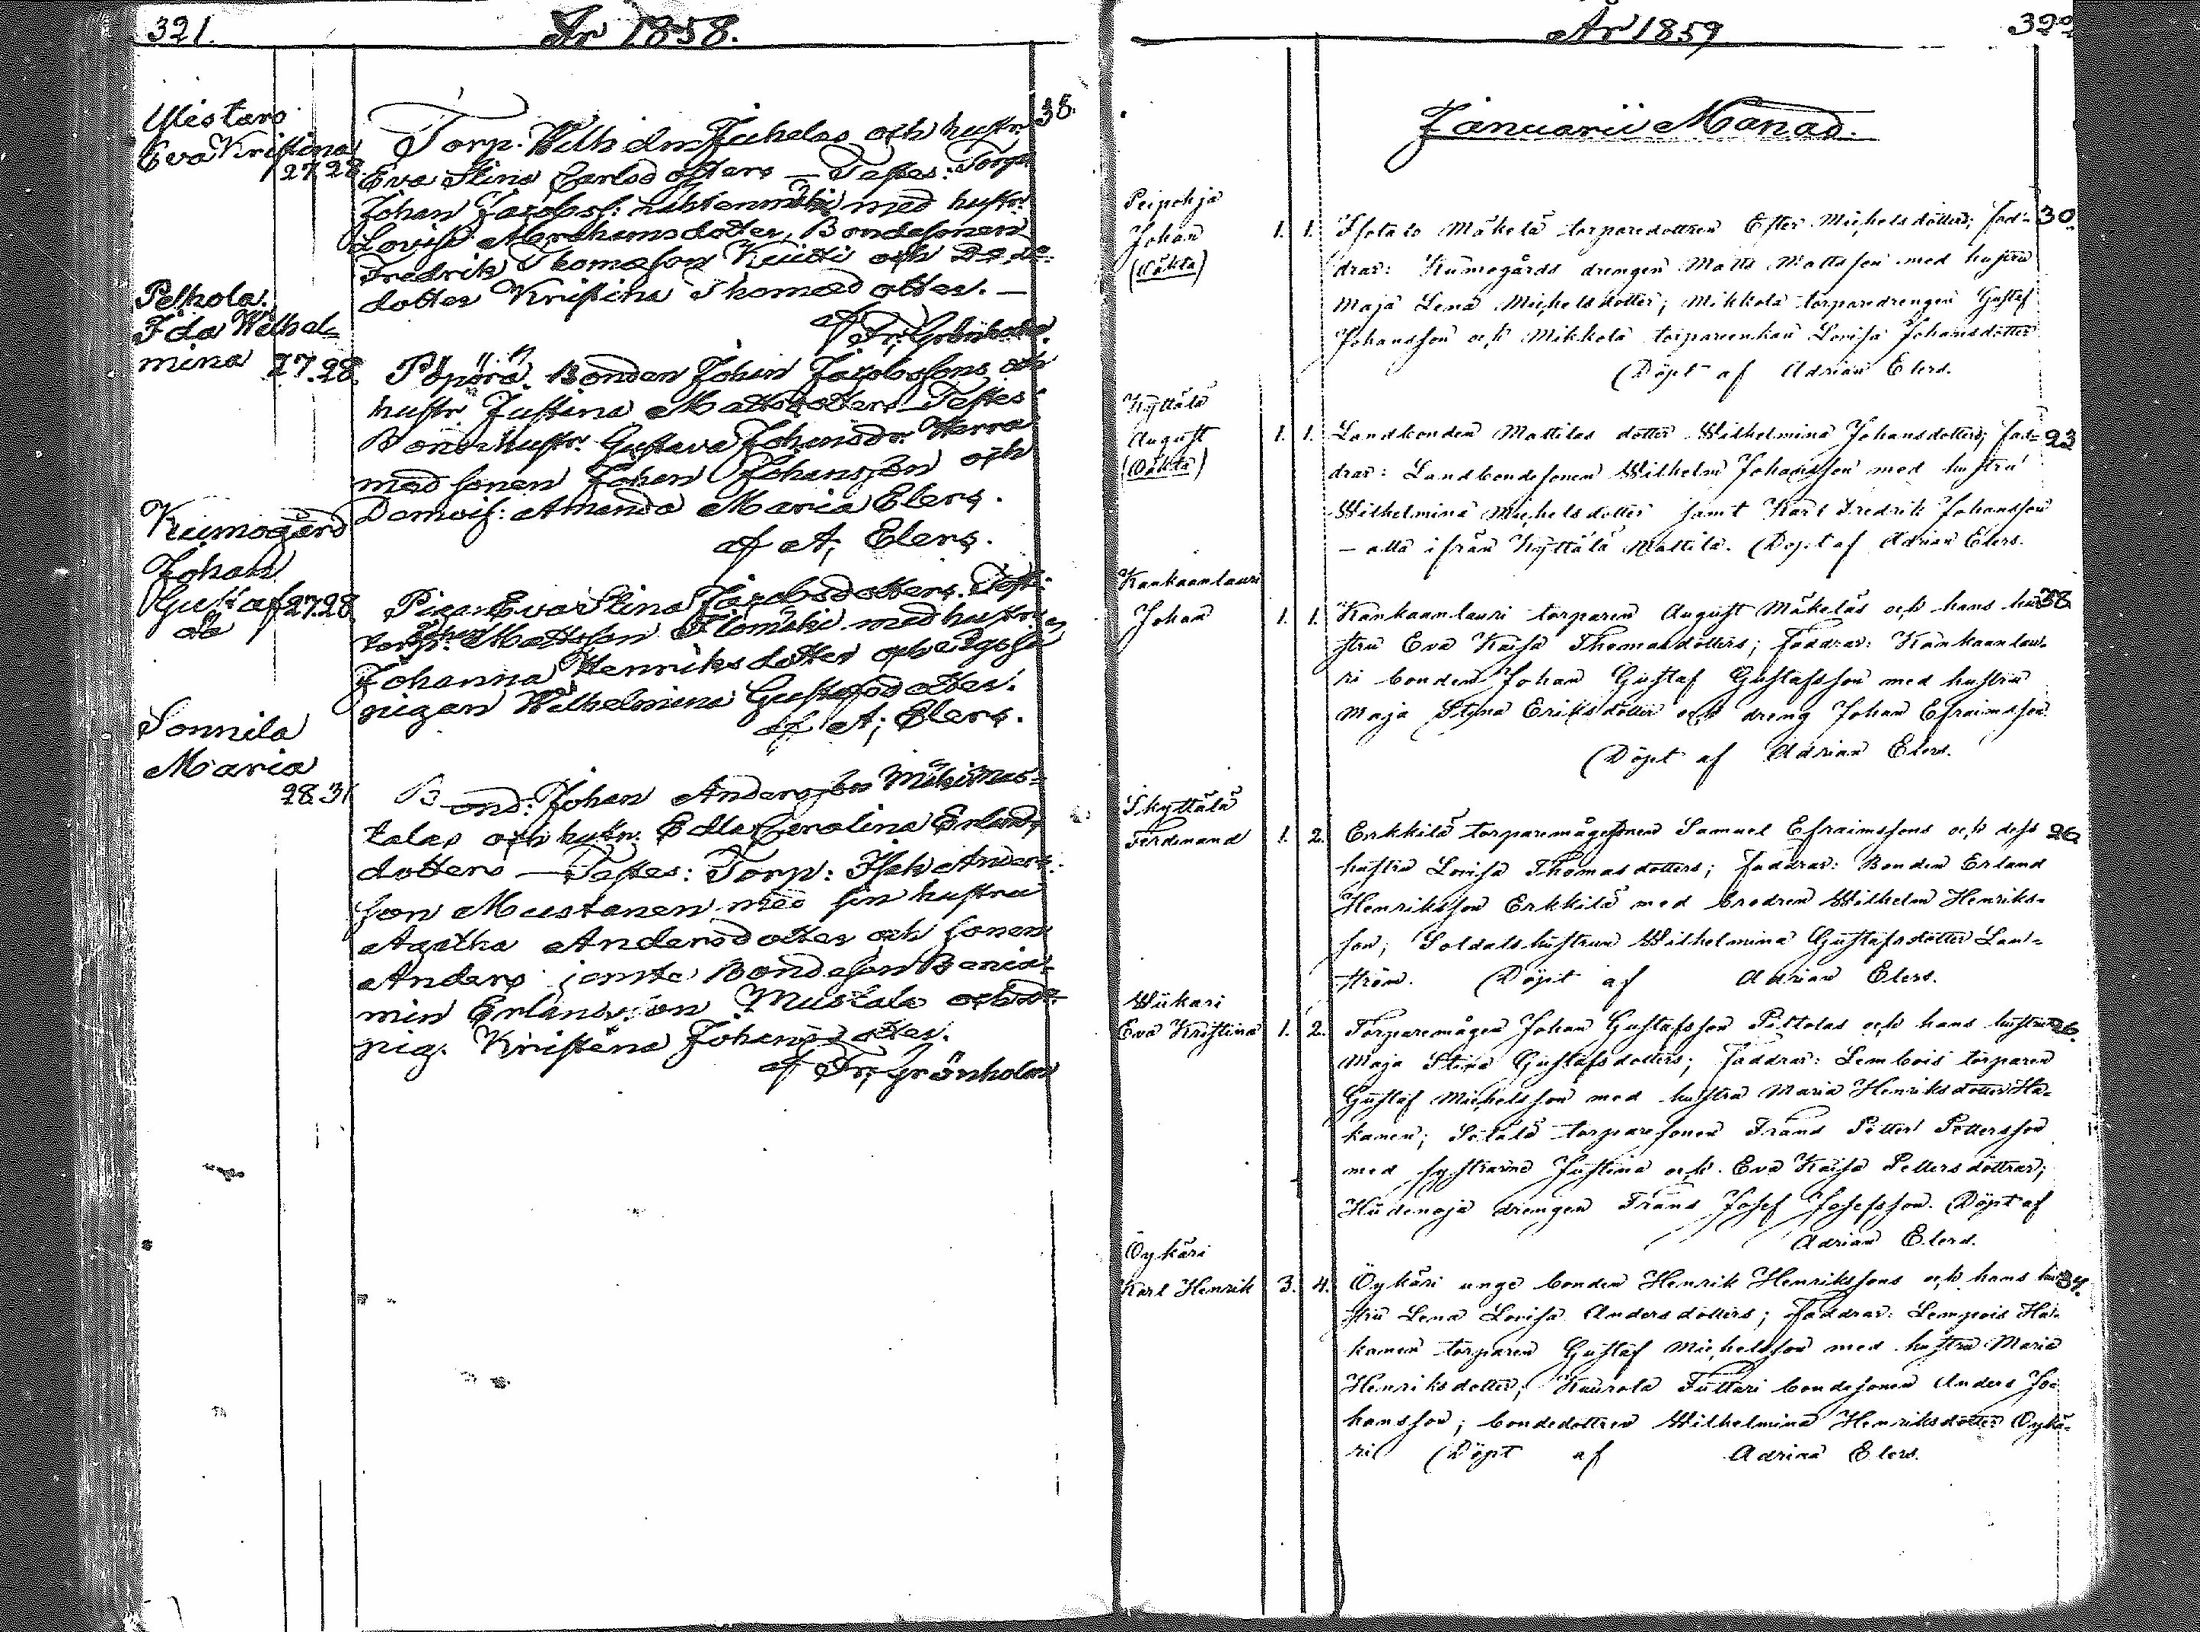 321.
År 1858.
Eva Kristina
27.28
38.
Torp. Wilhelm Juhelas och hustr.
Eva Stina Carlsdotters — Testes: Torp.
Johan Jacobss: med hustr.
Lovisa Abrahamsdotter, Bondesonen
Fredrik Thomasson och
dotter Kristina Thomædotter. —
af Fr; Grönholm.
Pelhola.
Ida Wilhel-
mina 27.28.
Bonden Johan Jacobssons och
hustr. Justina Mattsdotters Testes
Bondhustr. Gustava Johansdr. Herra
med sonen Johan Johansson och
Demois: Amanda Maria Elers.
af A; Elers.
Kumogård
Johan
Gustaf 27.28
oä
Pigan Eva Stina Jacobsdotters. Test:
Torp: Mattsson med hustr.
Johanna Henriksdotter och
pigan Wilhelmina Gustafsdotter.
af A; Elers.
Sonnila
Maria
28.31
Bond: Johan Andersson
talas och hustr. Edla Carolina Erlands
dotters — Testes: Torp: Isak Anders-
son Mustanen med sin hustru
Agatha Andersdotter och sonen
Anders jemte Bondeson Benja-
min Erlandsson Mustala och
pig. Kristina Johansdotter.
af Fr; Grönholm
År 1859
322
Januarii Månad.
Peipohja
Johan 1. 1.
(Oäkta)
Isotalo Mäkelä torparedottren Ester Michelsdotters; fad- 30.
drar: Kumogårds drengen Matts Mattsson med hustru
Maja Lena Michelsdotter; Mikkola torparedrengen Gustaf
Johansson och Mikkola torpareenkan Lovisa Johansdotter
(Döpt af Adrian Elers.
Kyttälä
August 1. 1.
(Oäkta)
Landbonden Mattilas dotter Wilhelmina Johansdotters; fad- 23
drar: Landbondesonen Wilhelm Johansson med hustru
Wilhelmina Michelsdotter samt Karl Fredrik Johansson
— alla ifrån Kyttälä Mattila. (Döpt af Adrian Elers.
Kankaanlauri
Johan 1. 1.
Kankaanlauri torparen August Mäkeläs och hans hu- 38
stru Eva Kaisa Thomasdotters; Faddrar: Kankaanlau-
ri bonden Johan Gustaf Gustafsson med hustru
Maja Stina Eriksdotter och dreng Johan Efraimsson
(Döpt af Adrian Elers.
Skyttälä
Ferdinand 1. 2.
Erkkilä torparemågen Samuel Efraimssons och dess 26
hustru Lovisa Thomasdotters; faddrar: Bonden Erland
Henriksson Erkkilä med brodren Wilhelm Henriks-
son; Soldatshustrun Wilhelmina Gustafsdotter Lan-
ström. (Döpt af Adrian Elers.
Wiikari
Eva Kristina 1. 2.
Torparemågen Johan Gustafsson Piltolas och hans hustru 26.
Maja Stina Gustafsdotters; Faddrar: Lembois torparen
Gustaf Michelsson med hustru Maria Henriksdotter Ha-
kanen; torparesonen Frans Petter Pettersson
med systrarne Justina och Eva Kaisa Pettersdöttrar;
Hiidenoja drengen Frans Josef Josefsson. Döpt af
Adrian Elers.
Öykäri
Karl Henrik 3. 4.
Öykäri unge bonden Henrik Henrikssons och hans hu- 34.
stru Lena Lovisa Andersdotters; Faddrar: Lempois Ha-
kanen torparen Gustaf Michelsson med hustru Maria
Henriksdotter; Kaurola Tuttari bondesonen Anders Jo-
hansson; bondedottren Wilhelmina Henriksdotter Öykä-
ri (Döpt af Adrian Elers.